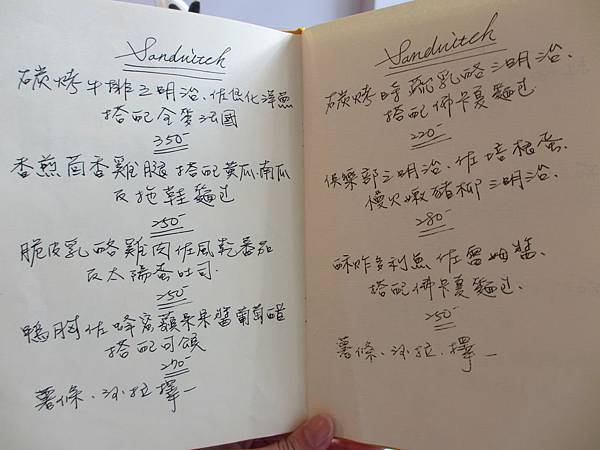 Sandwitch
碳烤牛排三明治、佐侵化洋蔥
搭配全麥法國
350-
香煎茴香雞腿搭配黃瓜、南瓜
及拖鞋麵包
250-
脆皮乳酪雞肉佐風乾番茄
及太陽蛋吐司.
250-
鴨胸佐蜂蜜蘋果果醬葡萄醋
搭配可頌
270-
薯條、沙拉擇一
Sandwitch
碳烤時蔬乳酪三明治、
搭配佛卡夏麵包
220-
俱樂部三明治、佐培根蛋、
慢火嫩豬柳三明治、
280-
酥炸多利魚佐雷姆醬、
搭配佛卡夏麵包、
250-
薯條、沙拉、擇一